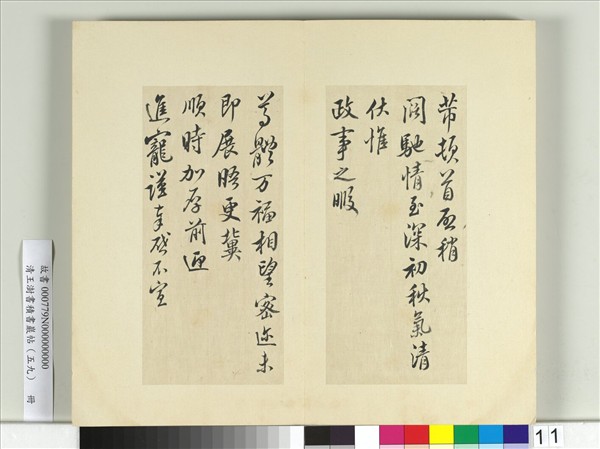 芾頓首啟稍
闊馳情至深初秋氣清
伏惟
政事之暇
尊體万福相望密迩未
即展晤更冀
順時加厚前迎
進寵謹奉啟不宣
故書000779N000000000
清王澍書積書巖帖(五九) 冊
11